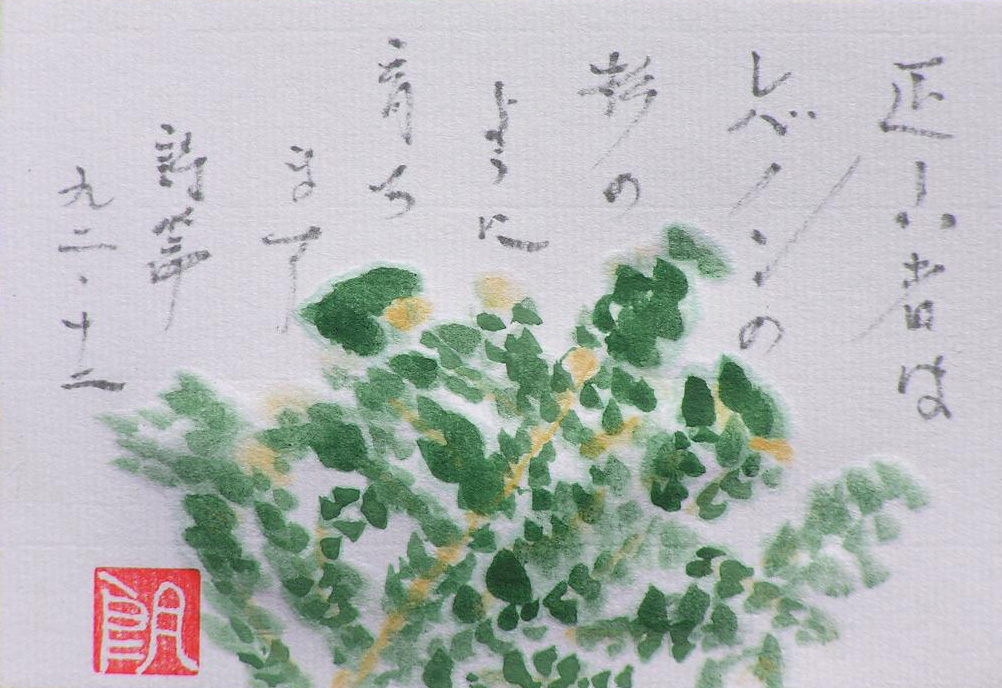 正しい者は
レバノンの
杉の
ように
育ち
ます
詩篇
九二・十二
朗